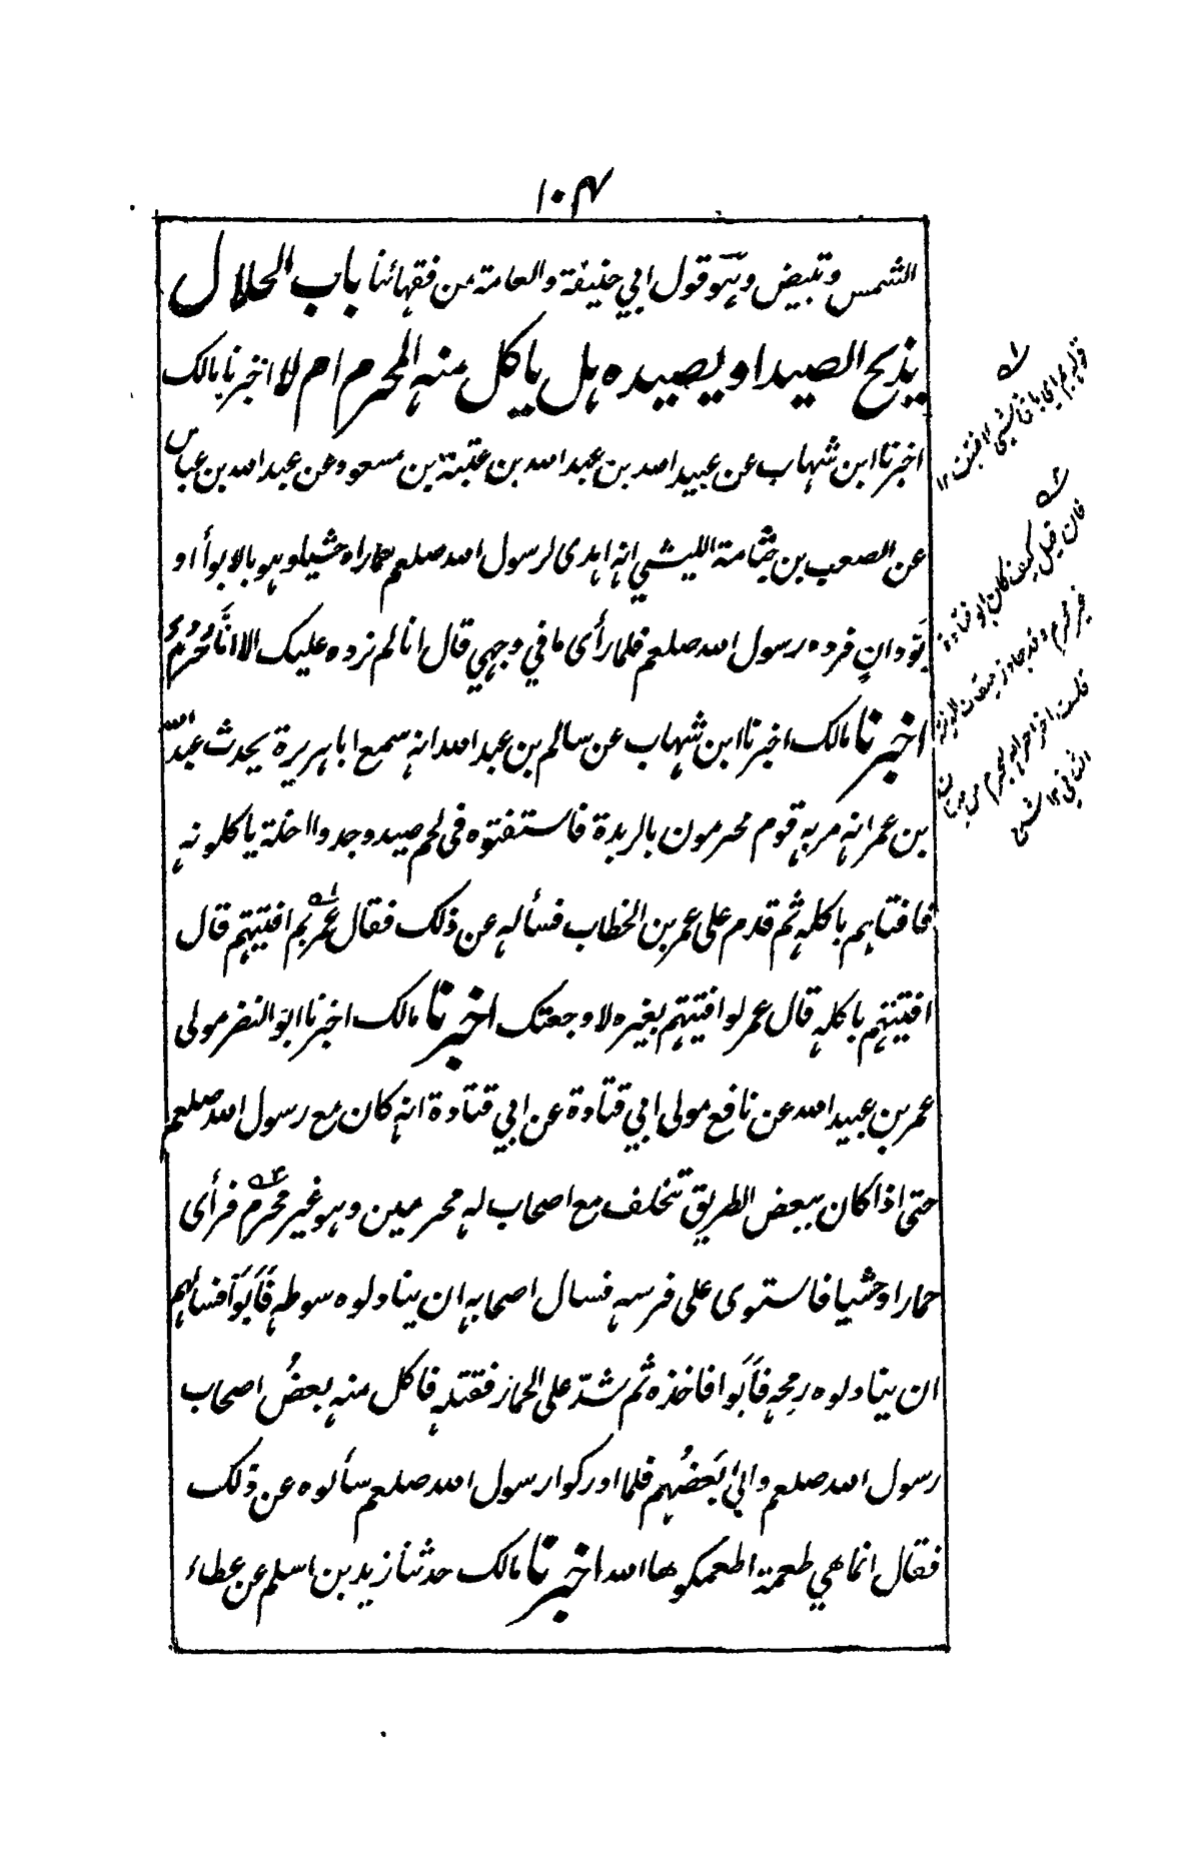 ۱۰۴
الشمس وتبيض وهو قول ابي حنيفة والعامة من فقهائنا باب الحلال
يذبح الصيد او يصيده هل ياكل منه المحرم ام لا اخبرنا مالك
اخبرنا ابن شهاب عن عبيد الله بن عبد الله بن عتبة بن مسعود عن عبد الله بن عباس
عن الصعب بن جثامة الليثي انه اهدى لرسول الله صلعم حمارا وحشيا وهو بالابوأ او
بَودانٍ فرده رسول الله صلعم فلما رأى ما في وجهي قال انا لم نرده عليك الا انَّا حُرُم
اخبرنا مالك اخبرنا ابن شهاب عن سالم بن عبد الله انه سمع ابا هريرة يحدث عبد الله
بن عمر انه مر به قوم محرمون بالربذة فاستفتوه في لحم صيد وجدوا احلة ياكلونه
فافتاهم باكله ثم قدم على عمر بن الخطاب فسأله عن ذلك فقال عمر بم افتيتهم قال
افتيتهم باكله قال عمر لو افتيتهم بغيره لاوجعتك اخبرنا مالك اخبرنا ابو النضر مولى
عمر بن عبيد الله عن نافع مولى ابي قتادة عن ابي قتادة انه كان مع رسول الله صلعم
حتى اذا كان ببعض الطريق تخلف مع اصحاب له محرمين وهو غير محرم فرأى
حمارا وحشيا فاستوى على فرسه فسال اصحابه ان يناولوه سوطه فَأَبَوْا فسالهم
ان يناولوه رمحه فَأَبَوا فاخذه ثم شدّ على الحمار فقتله فاكل منه بعضُ اصحاب
رسول الله صلعم وابى بَعضُهم فلما ادركوا رسول الله صلعم سألوه عن ذلك
فقال انما هي طعمة اطعمكموها الله اخبرنا مالك حدثنا زيد بن اسلم عن عطاء
قوله بم اى باى شىء افتيت ۱۲
فان قيل كيف كان ابو قتادة
غير محرم وقد جاوز ميقات المدينة
قلت